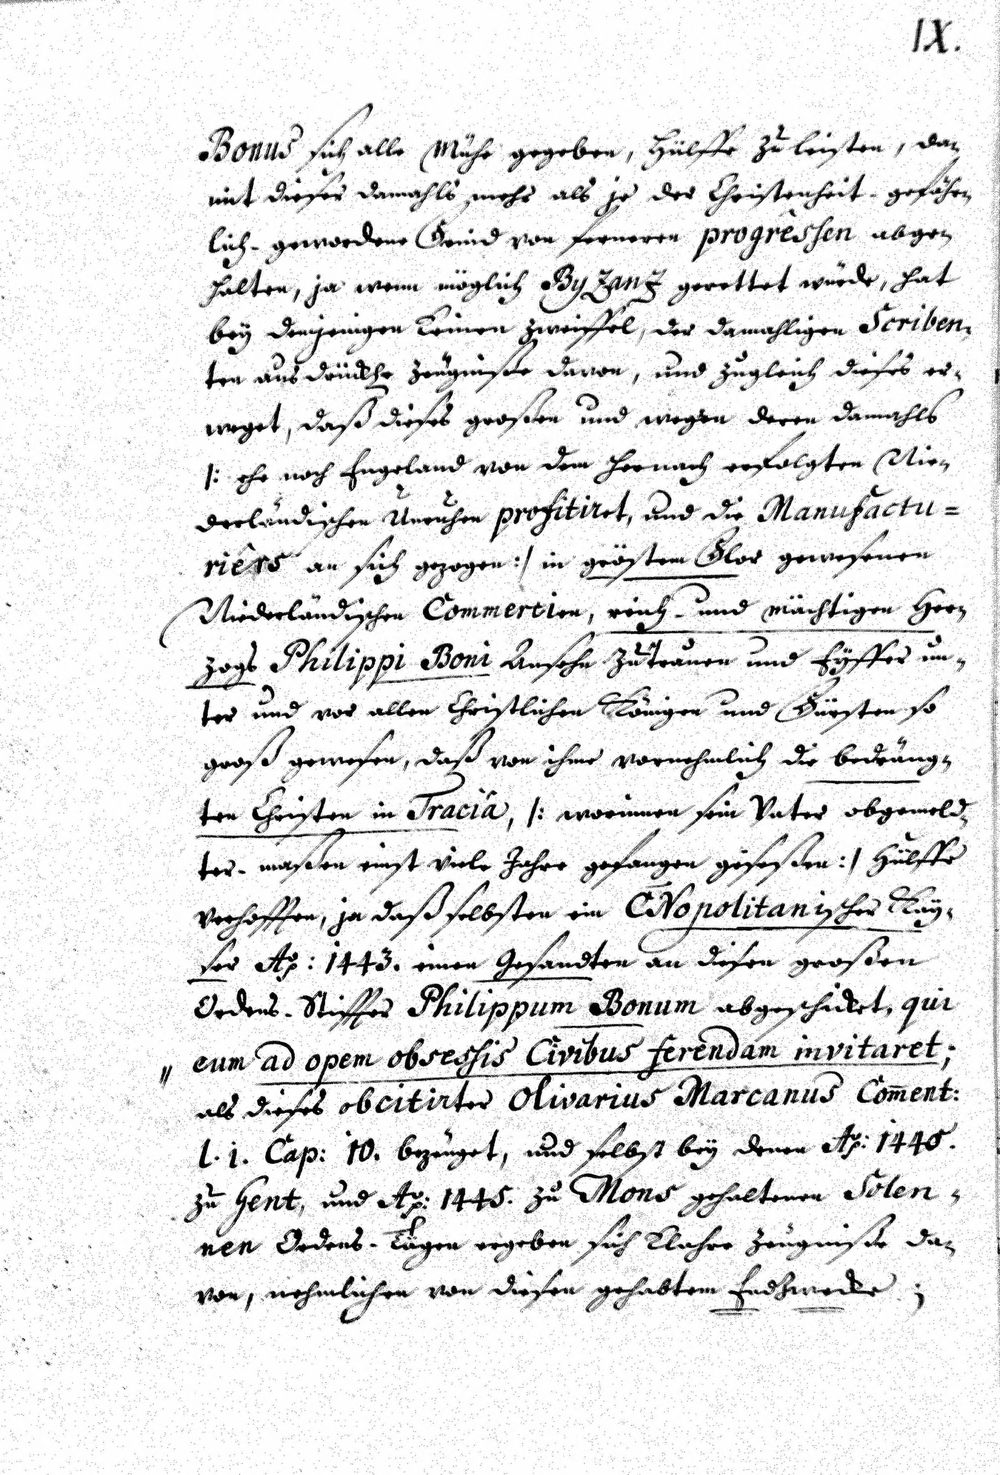 IX.
Bonus sich alle Mühe gegeben, Hülffe zu leisten, da-
mit dieser damahls mehr als je der Christenheit-gefähr-
lich-gewordene Feind von ferneren progressen abge-
halten, ja wenn möglich Byzanz gerettet würde, hat
bey denjenigen keinen zweiffel, der damahligen Scriben-
ten ausdrückhe zeügniße davon, und zugleich dieses er-
weget, daß dieses großen und wegen deren damahls
/: ehe noch Engeland von dem hernach erfolgten Nie-
derländischen Unruhen profitiret, und die Manufactu=
riers an sich gezogen :/ in gröstem Flor gewesenen
Niederländischen Commercien, reich- und mächtigen Her-
zogs Philippi Boni Ansehn Zutrauen und Eyffer un-
ter und vor allen Christlichen Königen und Fürsten so
groß gewesen, daß von ihme vornehmlich die bedräng-
ten Christen in Tracia, /: worinnen sein Vater obgemeld-
ter-maßen einst viele Jahre gefangen geseßen :/ Hülffe
verhoffen, ja daß selbsten ein CNopolitanischer Kay-
ser Ao: 1443. einen Gesandten an diesen großen
Ordens-Stiffter Philippum Bonum abgeschicket, qui
" eum ad opem obsessis Civibus ferendam invitaret;
als dieses obcitirter Olivarius Marcanus Com̅ent:
l. i. Cap: 10. bezeuget, und selbst bey denen Ao: 1445.
zu Gent, und Ao: 1445. zu Mons gehaltenen Solen-
nen Ordens-Tägen ergeben sich klahre zeügniße da-
von, nehmlichen von diesen gehabtem Endzwecke ;